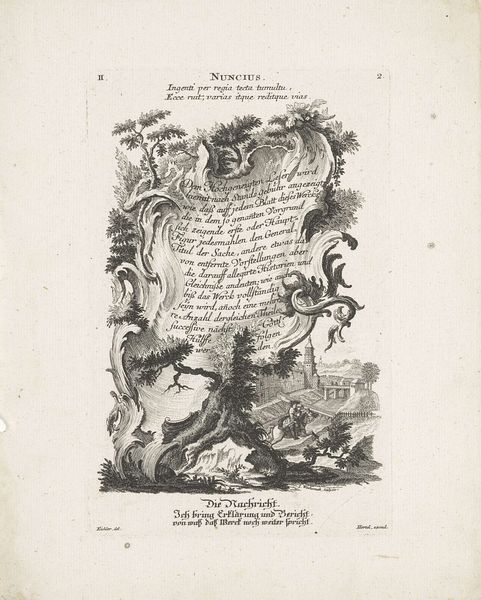 II. NUNCIUS. 2.
Ingenti per regia tecta tumultu,
Ecce ruit; varias itque reditque vias.
Dem Hochgeneigten Leser wird
hiemit nach Stands gebühr angezeigt
wie daß auff jedem Blatt dieses Wercks
die in dem so genanten Vorgrund
sich zeigende erste oder Haupt-
Figur jedesmahlen den General-
Titul der Sache, andere etwas da
von entfernte Vorstellungen aber
die darauff allegirte Historien und
Gleichniße andeuten; wie auch
biß das Werck vollständig
seyn wird, añoch eine mehre-
re Anzahl dergleichen Theile
successive nächst Gött
Hülffe folgen
werden
Die Nachricht.
Ich bring Erklärung und Bericht.
von waß daß Werck noch weiter spricht.
Eichler, del.
Hertel, excud.